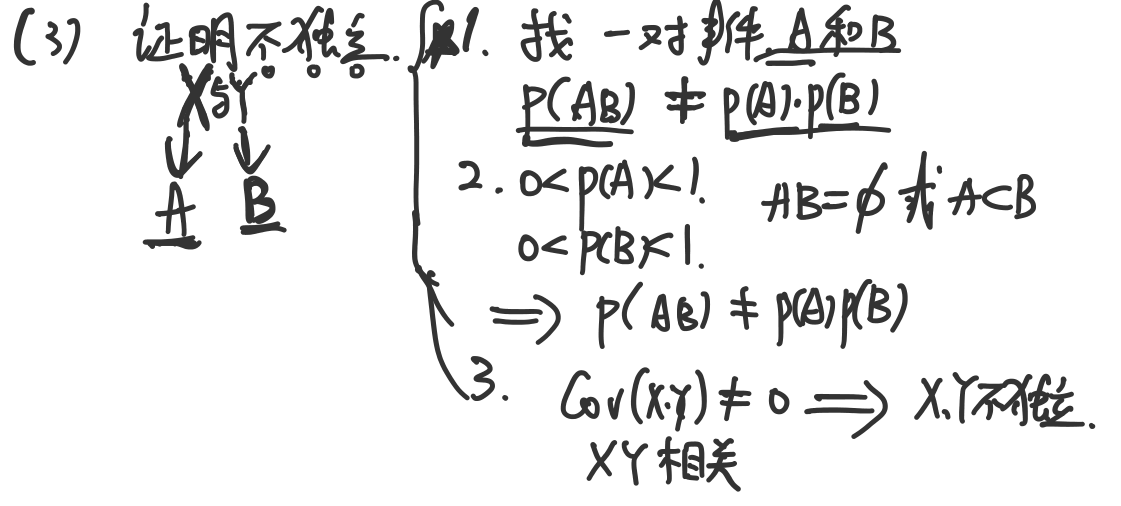 (3) 证明不独立. 1. 找一对事件 A和B
X与Y P(AB) ≠ P(A)·P(B)
A B 2. 0<P(A)<1. AB=∅ 或 A⊂B
0<P(B)<1.
⟹ P(AB) ≠ P(A)P(B)
3. Cov(X.Y) ≠ 0 ⟹ X.Y不独立.
XY相关